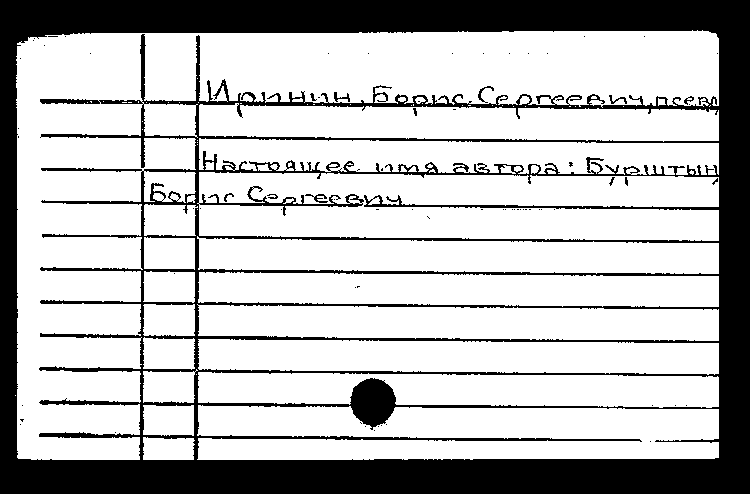 Иринин, Борис Сергеевич, псевд
Настоящее имя автора: Бурштын,
Борис Сергеевич